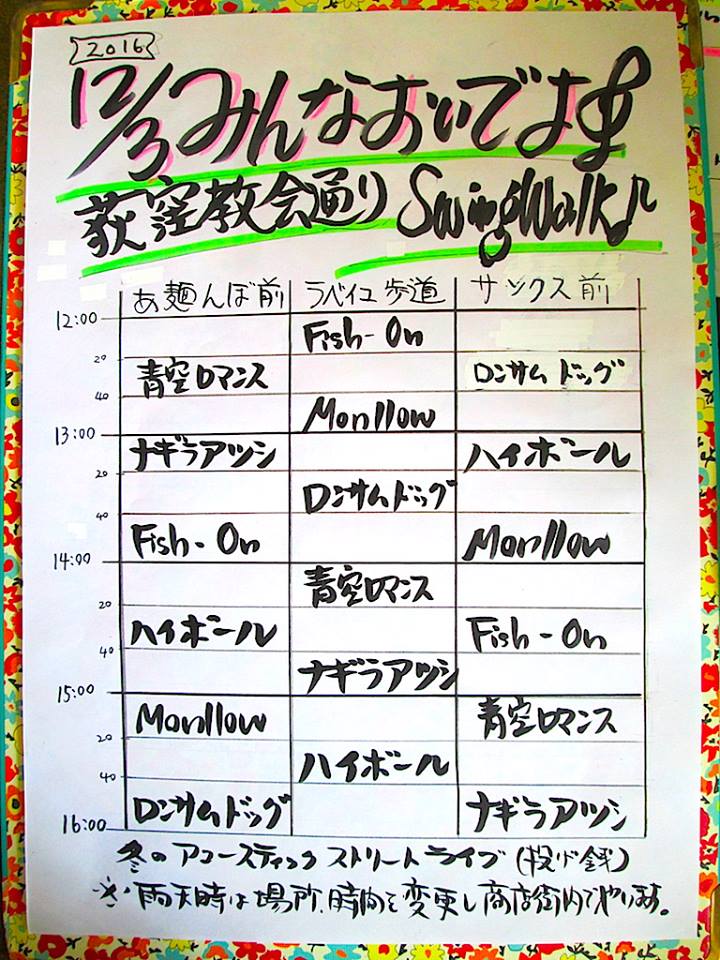 2016
12/3みんなおいでよ
荻窪教会通り SwingWalk♪
あ麺んぼ前 ラベイユ歩道 サックス前
12:00 Fish-On
20 青空ロマンス ロンサムドッグ
40 Monllow
13:00 ナギラアツシ ハイボール
20 ロンサムドッグ
40 Fish-On Monllow
14:00 青空ロマンス
20 ハイボール Fish-On
40 ナギラアツシ
15:00 Monllow 青空ロマンス
20 ハイボール
40 ロンサムドッグ ナギラアツシ
16:00
冬のアコースティックストリートライブ(投げ銭)
※雨天時は場所、時間を変更し商店街内でやります。